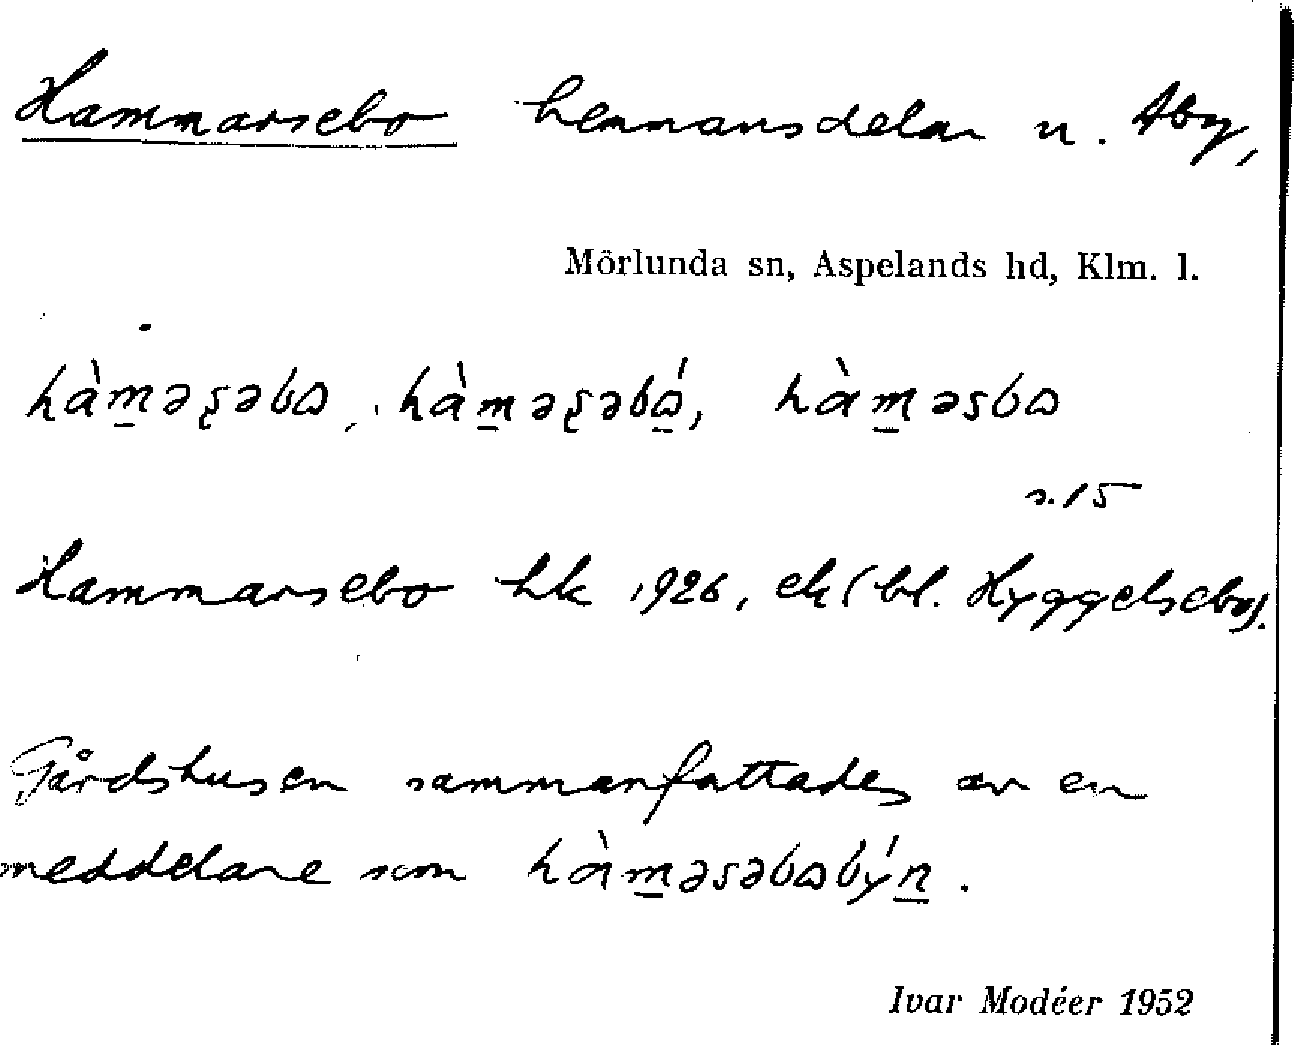 Hammarsebo hemmansdelar n. Åby,
Mörlunda sn, Aspelands hd, Klm. l.
hàm̲əʂəbɷ, hàm̲əʂəbɷ̲́, hàm̲əsbɷ
s. 15
Hammarsebo hk 1926, ek (bl. Hyggelsebo).
Gårdshusen sammanfattades av en
meddelare som hàm̲əsəbɷbýn̲.
Ivar Modéer 1952